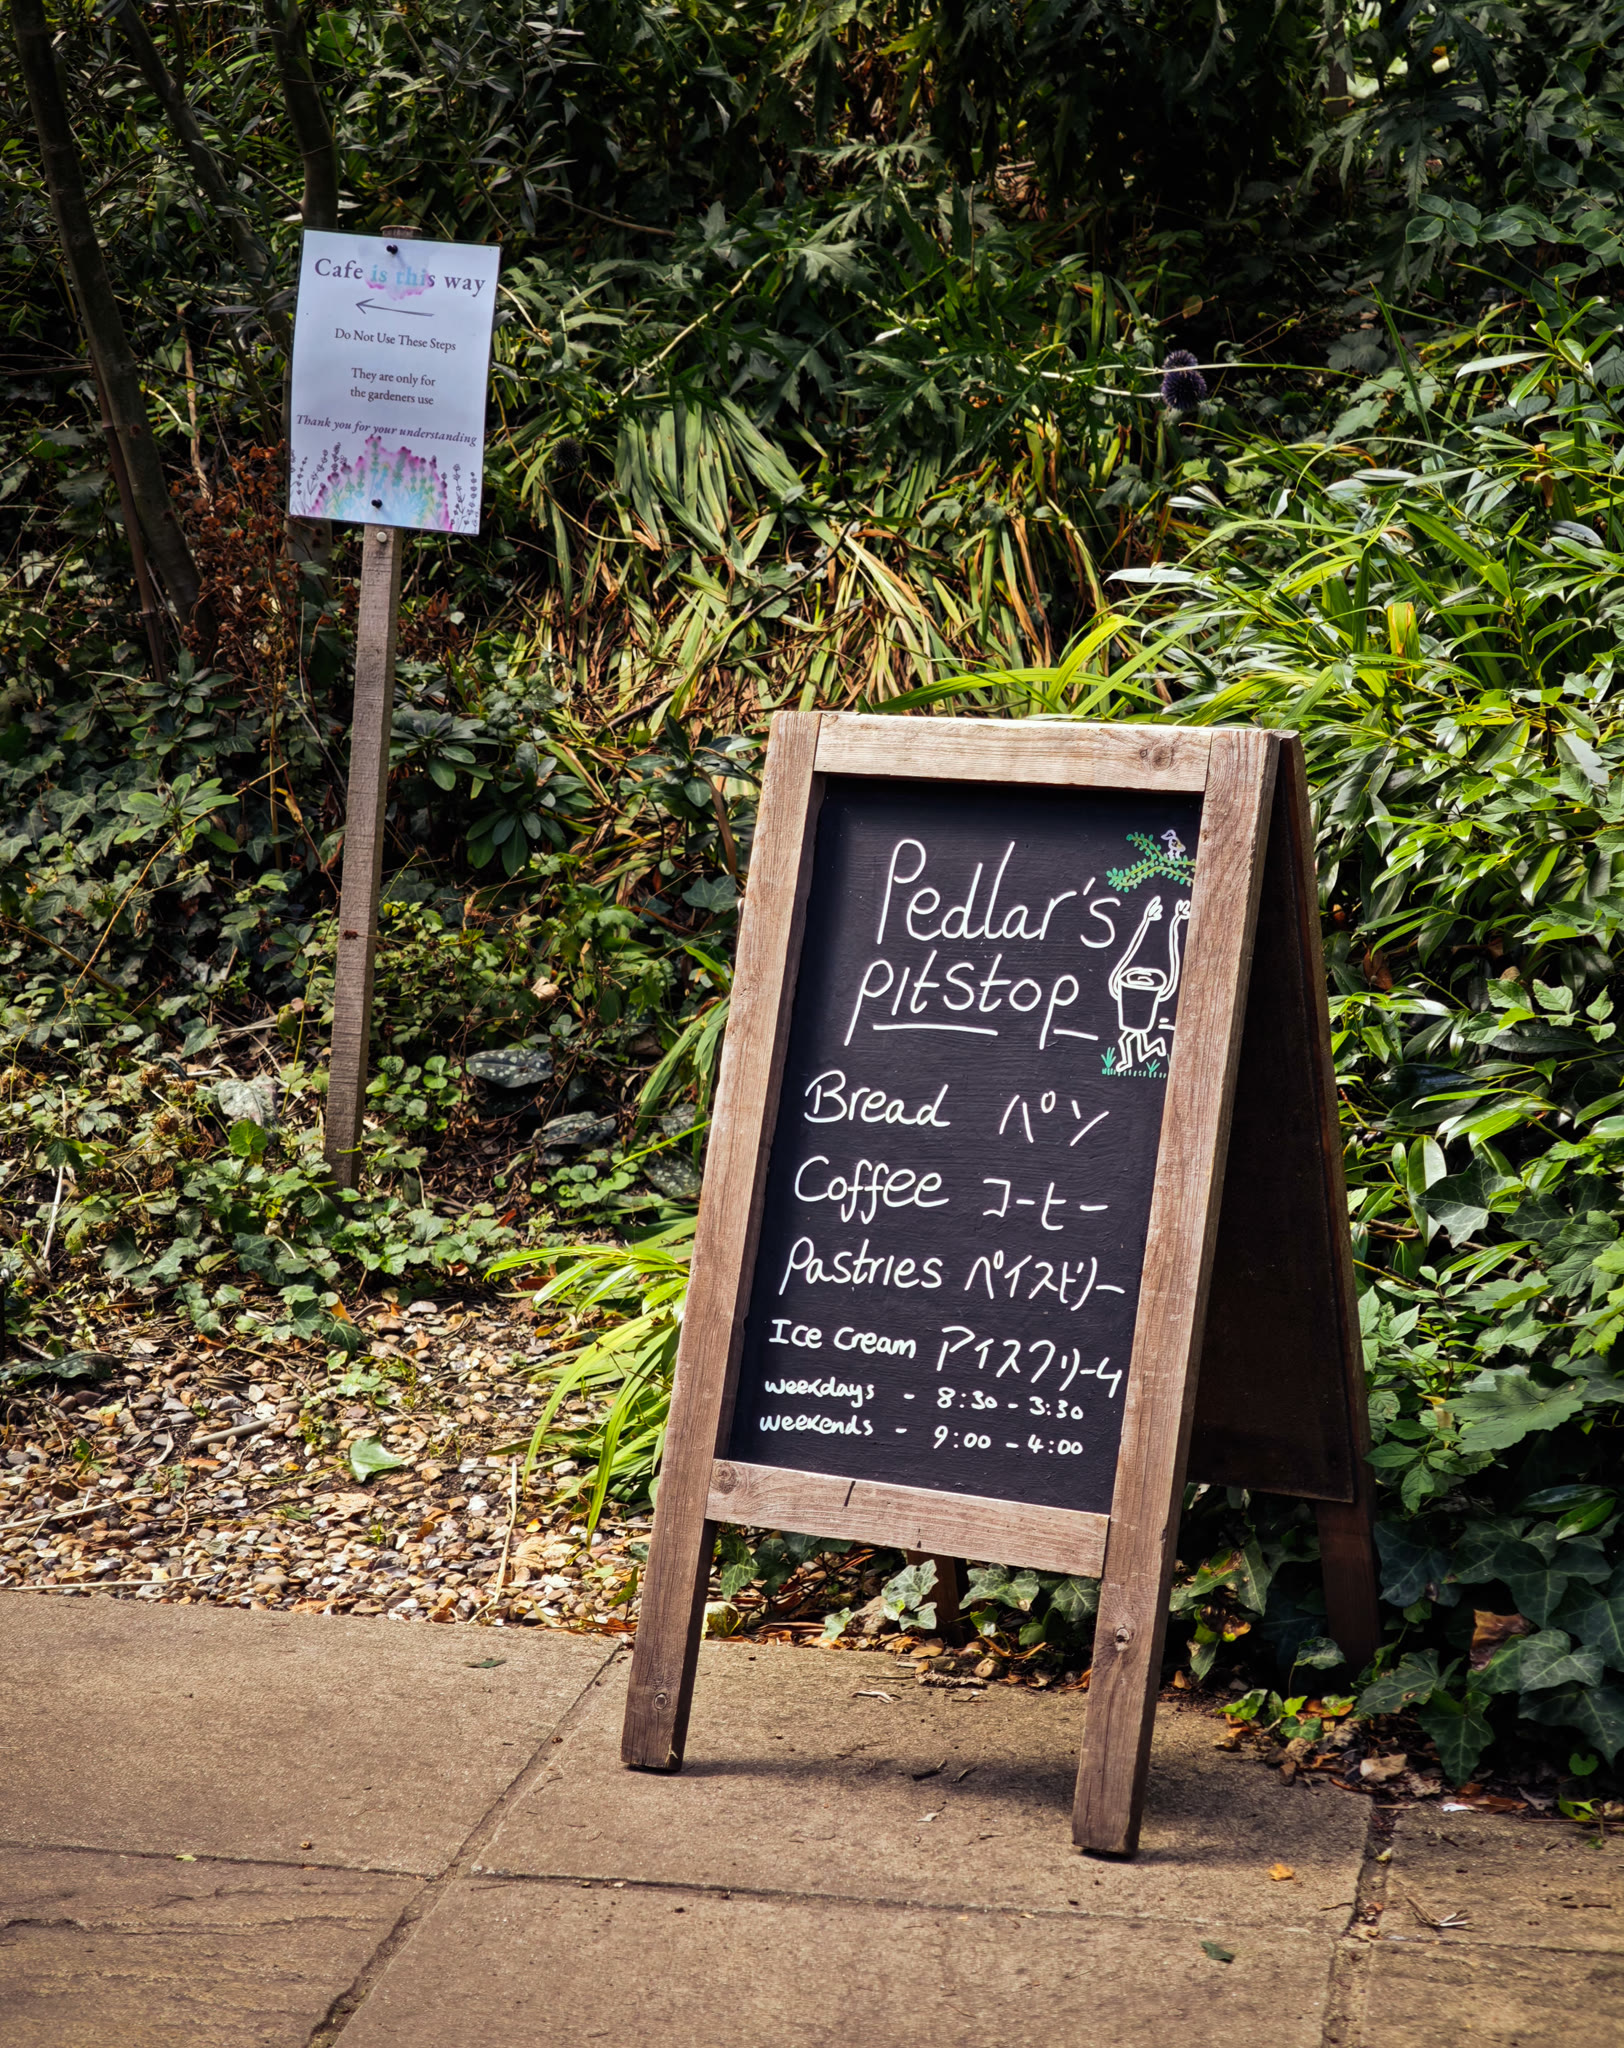 Cafe is this way
Do Not Use These Steps
They are only for
the gardeners use
Thank you for your understanding
Pedlar's
pitstop
Bread パン
Coffee コーヒー
Pastries ペイストリー
Ice cream アイスクリーム
weekdays - 8:30 - 3:30
weekends - 9:00 - 4:00